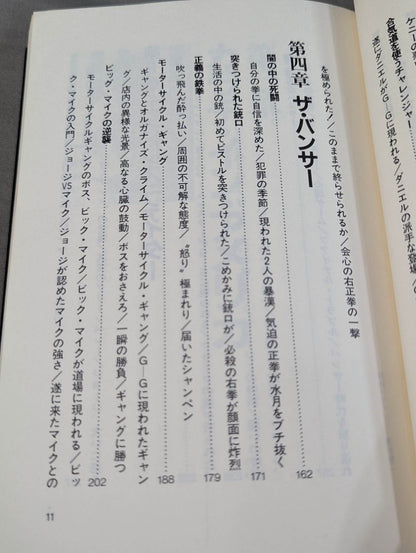 ケニーの
合気道を使うチャレンジャー
遂にダニエルがG―Gに現われる/ダニエルの派手な登場/
を極められた!/このままで終らせられるか/会心の右正拳の一撃
第四章 ザ・バンサー
闇の中の死闘 162
自分の拳に自信を深めた/犯罪の季節/現われた2人の暴漢/気迫の正拳が水月をブチ抜く
突きつけられた銃口 171
生活の中の銃/初めてピストルを突きつけられた/こめかみに銃口が/必殺の右拳が顔面に炸烈
正義の鉄拳 179
吹っ飛んだ酔っ払い/周囲の不可解な態度/〝怒り〟極まれり/届いたシャンペン
モーターサイクル・ギャング 188
ギャングとオルガナイズ・クライム/モーターサイクル・ギャング/G―Gに現われたギャン
グ/店内の異様な光景/高なる心臓の鼓動/ボスをおさえろ/一瞬の勝負/ギャングに勝つ
ビック・マイクの逆襲 202
モーターサイクルギャングのボス、ビック・マイク/ビック・マイクが道場に現われる/ビッ
ク・マイクの入門/ジョージVSマイク/ジョージが認めたマイクの強さ/遂に来たマイクとの
11